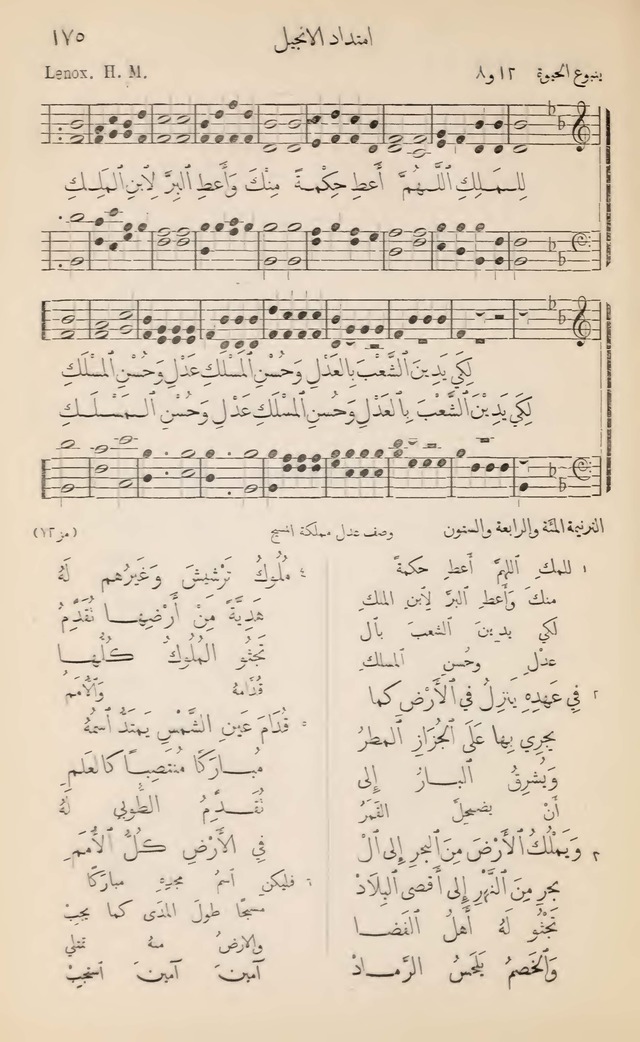 امتداد الانجيل ١٧٥
ينبوع الحيوة ١٢ و٨ Lenox. H. M.
لِلـمَـلِكِ ٱللّٰـهُمَّ أَعطِ حِكْمـةً مِنْكَ وَأَعطِ ٱلبِرَّ لِٱبنِ ٱلمَلِـكِ
لِكَي يَدِينَ ٱلشَّعْبَ بِٱلعَدْلِ وَحُسْنِ ٱلمَسْلَكِ عَدْلِ وَحُسْنِ ٱلمَسْلَكِ
لِكَي يَدِيْنَ ٱلشَّعْبَ بِٱلعَدْلِ وَحُسنِ ٱلمَسْلَكِ عَدْلِ وَحُسْنِ ٱلـمَـسْـلَـكِ
الترنيمة المئة والرابعة والستون وصف عدل مملكة المسيح (مز ٧٢)
١ للملكِ اللهمَّ أَعطِ حكمةً
منكَ وَأَعطِ البرَّ لِابنِ الملكِ
لكي يدينَ الشعبَ بٱل
عدلِ وحُسنِ المسلكِ
٢ فِي عَهدِهِ يَنزِلُ في ٱلأَرْضِ كما
يجرِي بِها عَلَى ٱلجُزَازِ ٱلمَطرُ
وَيُشرِقُ ٱلبـارُ إِلى
أَنْ يضمحلَّ القَمَرُ
٣ وَيَمْلُكُ ٱلأَرْضَ مِنَ ٱلبحرِ إِلى ٱلْ
بحرِ مِنَ ٱلنَّهْرِ إِلَى أَقصَى ٱلبِلَادْ
تَجْثُو لَهُ أَهلُ ٱلفَضـا
وَٱلخَصمُ يَلحَسُ الرَّمـادْ
٤ مُلُوكُ تَرْشِيشَ وَغَيرُهم لَهُ
هَدِيَّةً مِنْ أَرْضِهـا نُقَدِّمُ
تَجثُو المُلُوكُ كُلُّهـا
قُدَّامهُ وَٱلأُمَمُ
٥ قُدَّامَ عَينِ الشَّمْسِ يَمتَدُّ ٱسمُهُ
مُبـارَكًا مُنتَصِبـاً كالعَلَمِ
نُقَـدِّمُ الطُّوبَى لَهُ
فِي الأَرْضِ كُلُّ ٱلأُمَمِ
٦ فليكن ٱسمُ مجدِهِ مباركًا
مسبحًا طولَ المدَى كما يجبْ
والارضُ منهُ تمتلي
آمينَ آمينَ ٱستجِبْ